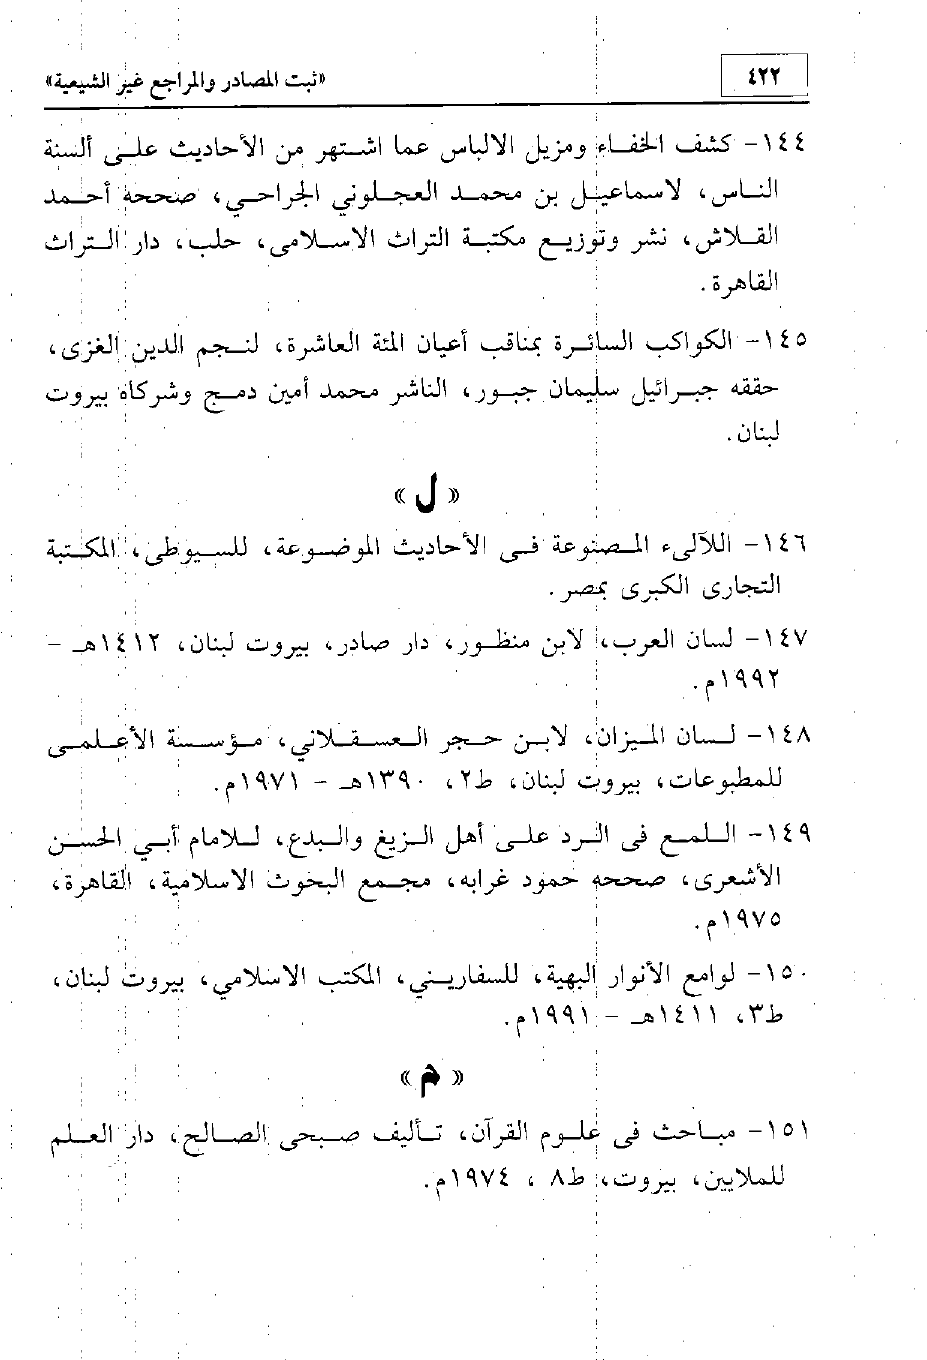 ٤٢٢
«ثبت المصادر والمراجع غير الشيعية»
١٤٤- كشف الخفاء ومزيل الالباس عما اشتهر من الأحاديث على ألسنة
الناس، لاسماعيل بن محمد العجلوني الجراحي، صححه أحمد
القلاش، نشر وتوزيع مكتبة التراث الاسلامى، حلب، دار التراث
القاهرة.
١٤٥- الكواكب السائرة بمناقب أعيان المئة العاشرة، لنجم الدين الغزى،
حققه جبرائيل سليمان جبور، الناشر محمد أمين دمج وشركاه بيروت
لبنان.
«ل»
١٤٦- اللآلىء المصنوعة فى الأحاديث الموضوعة، للسيوطى، المكتبة
التجارى الكبرى بمصر.
١٤٧- لسان العرب، لابن منظور، دار صادر، بيروت لبنان، ١٤١٢هـ -
١٩٩٢م.
١٤٨- لسان الميزان، لابن حجر العسقلاني، مؤسسة الأعلمى
للمطبوعات، بيروت لبنان، ط٢، ١٣٩٠هـ - ١٩٧١م.
١٤٩- اللمع فى الرد على أهل الزيغ والبدع، للامام أبي الحسن
الأشعرى، صححه حمود غرابه، مجمع البحوث الاسلامية، القاهرة،
١٩٧٥م.
١٥٠- لوامع الأنوار البهية، للسفاريني، المكتب الاسلامي، بيروت لبنان،
ط٣، ١٤١١هـ - ١٩٩١م.
«م»
١٥١- مباحث فى علوم القرآن، تأليف صبحى الصالح، دار العلم
للملايين، بيروت، ط٨ ، ١٩٧٤م.